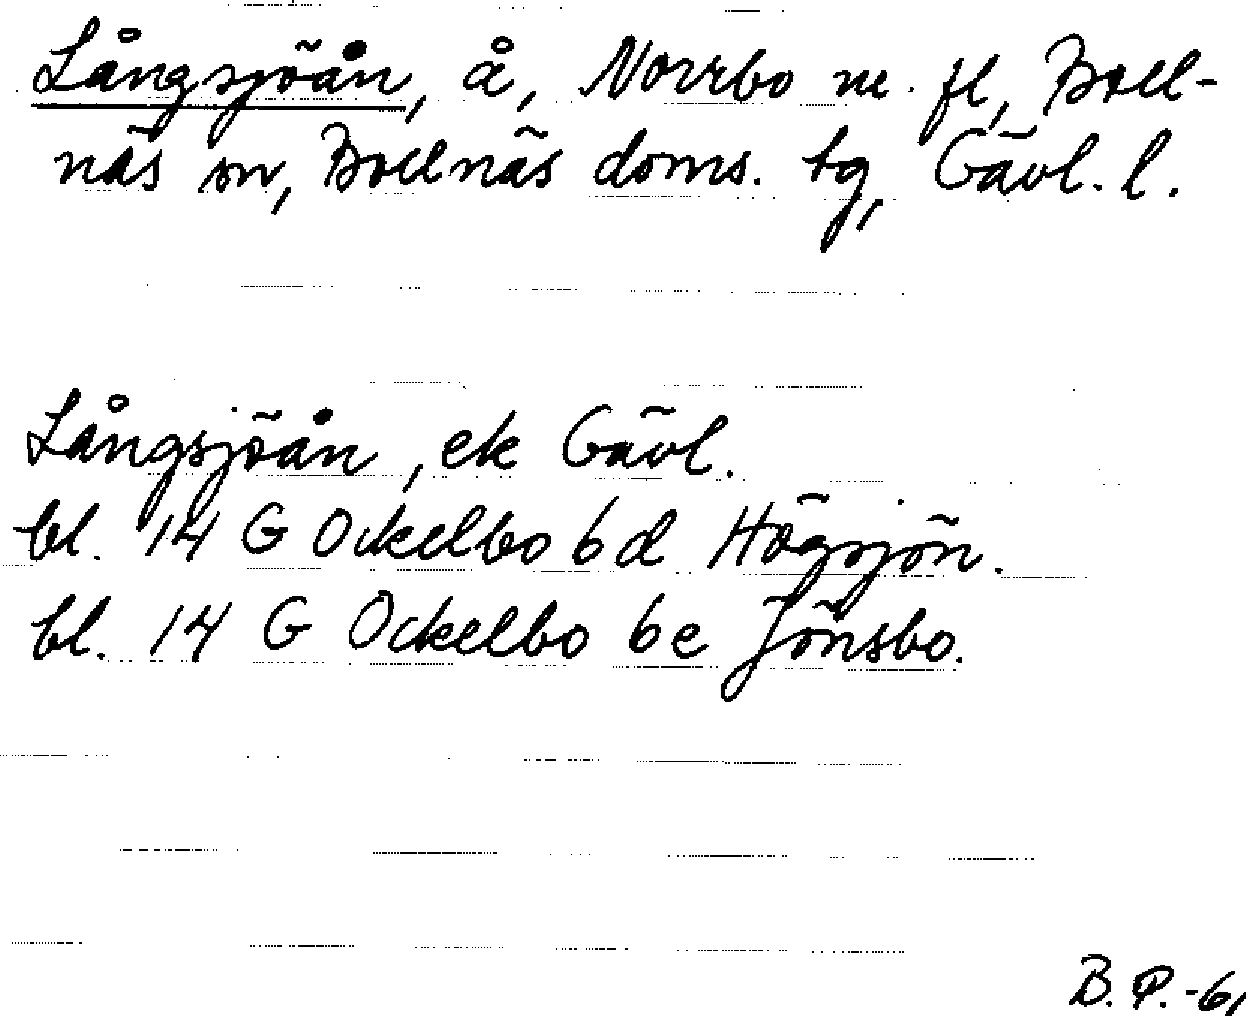 Långsjöån, å, Norrbo m. fl, Boll-
näs sn, Bollnäs doms. tg, Gävl. l.
Långsjöån, ek Gävl.
bl. 14 G Ockelbo 6d Högsjön.
bl. 14 G Ockelbo 6e Jönsbo.
B. P. -61